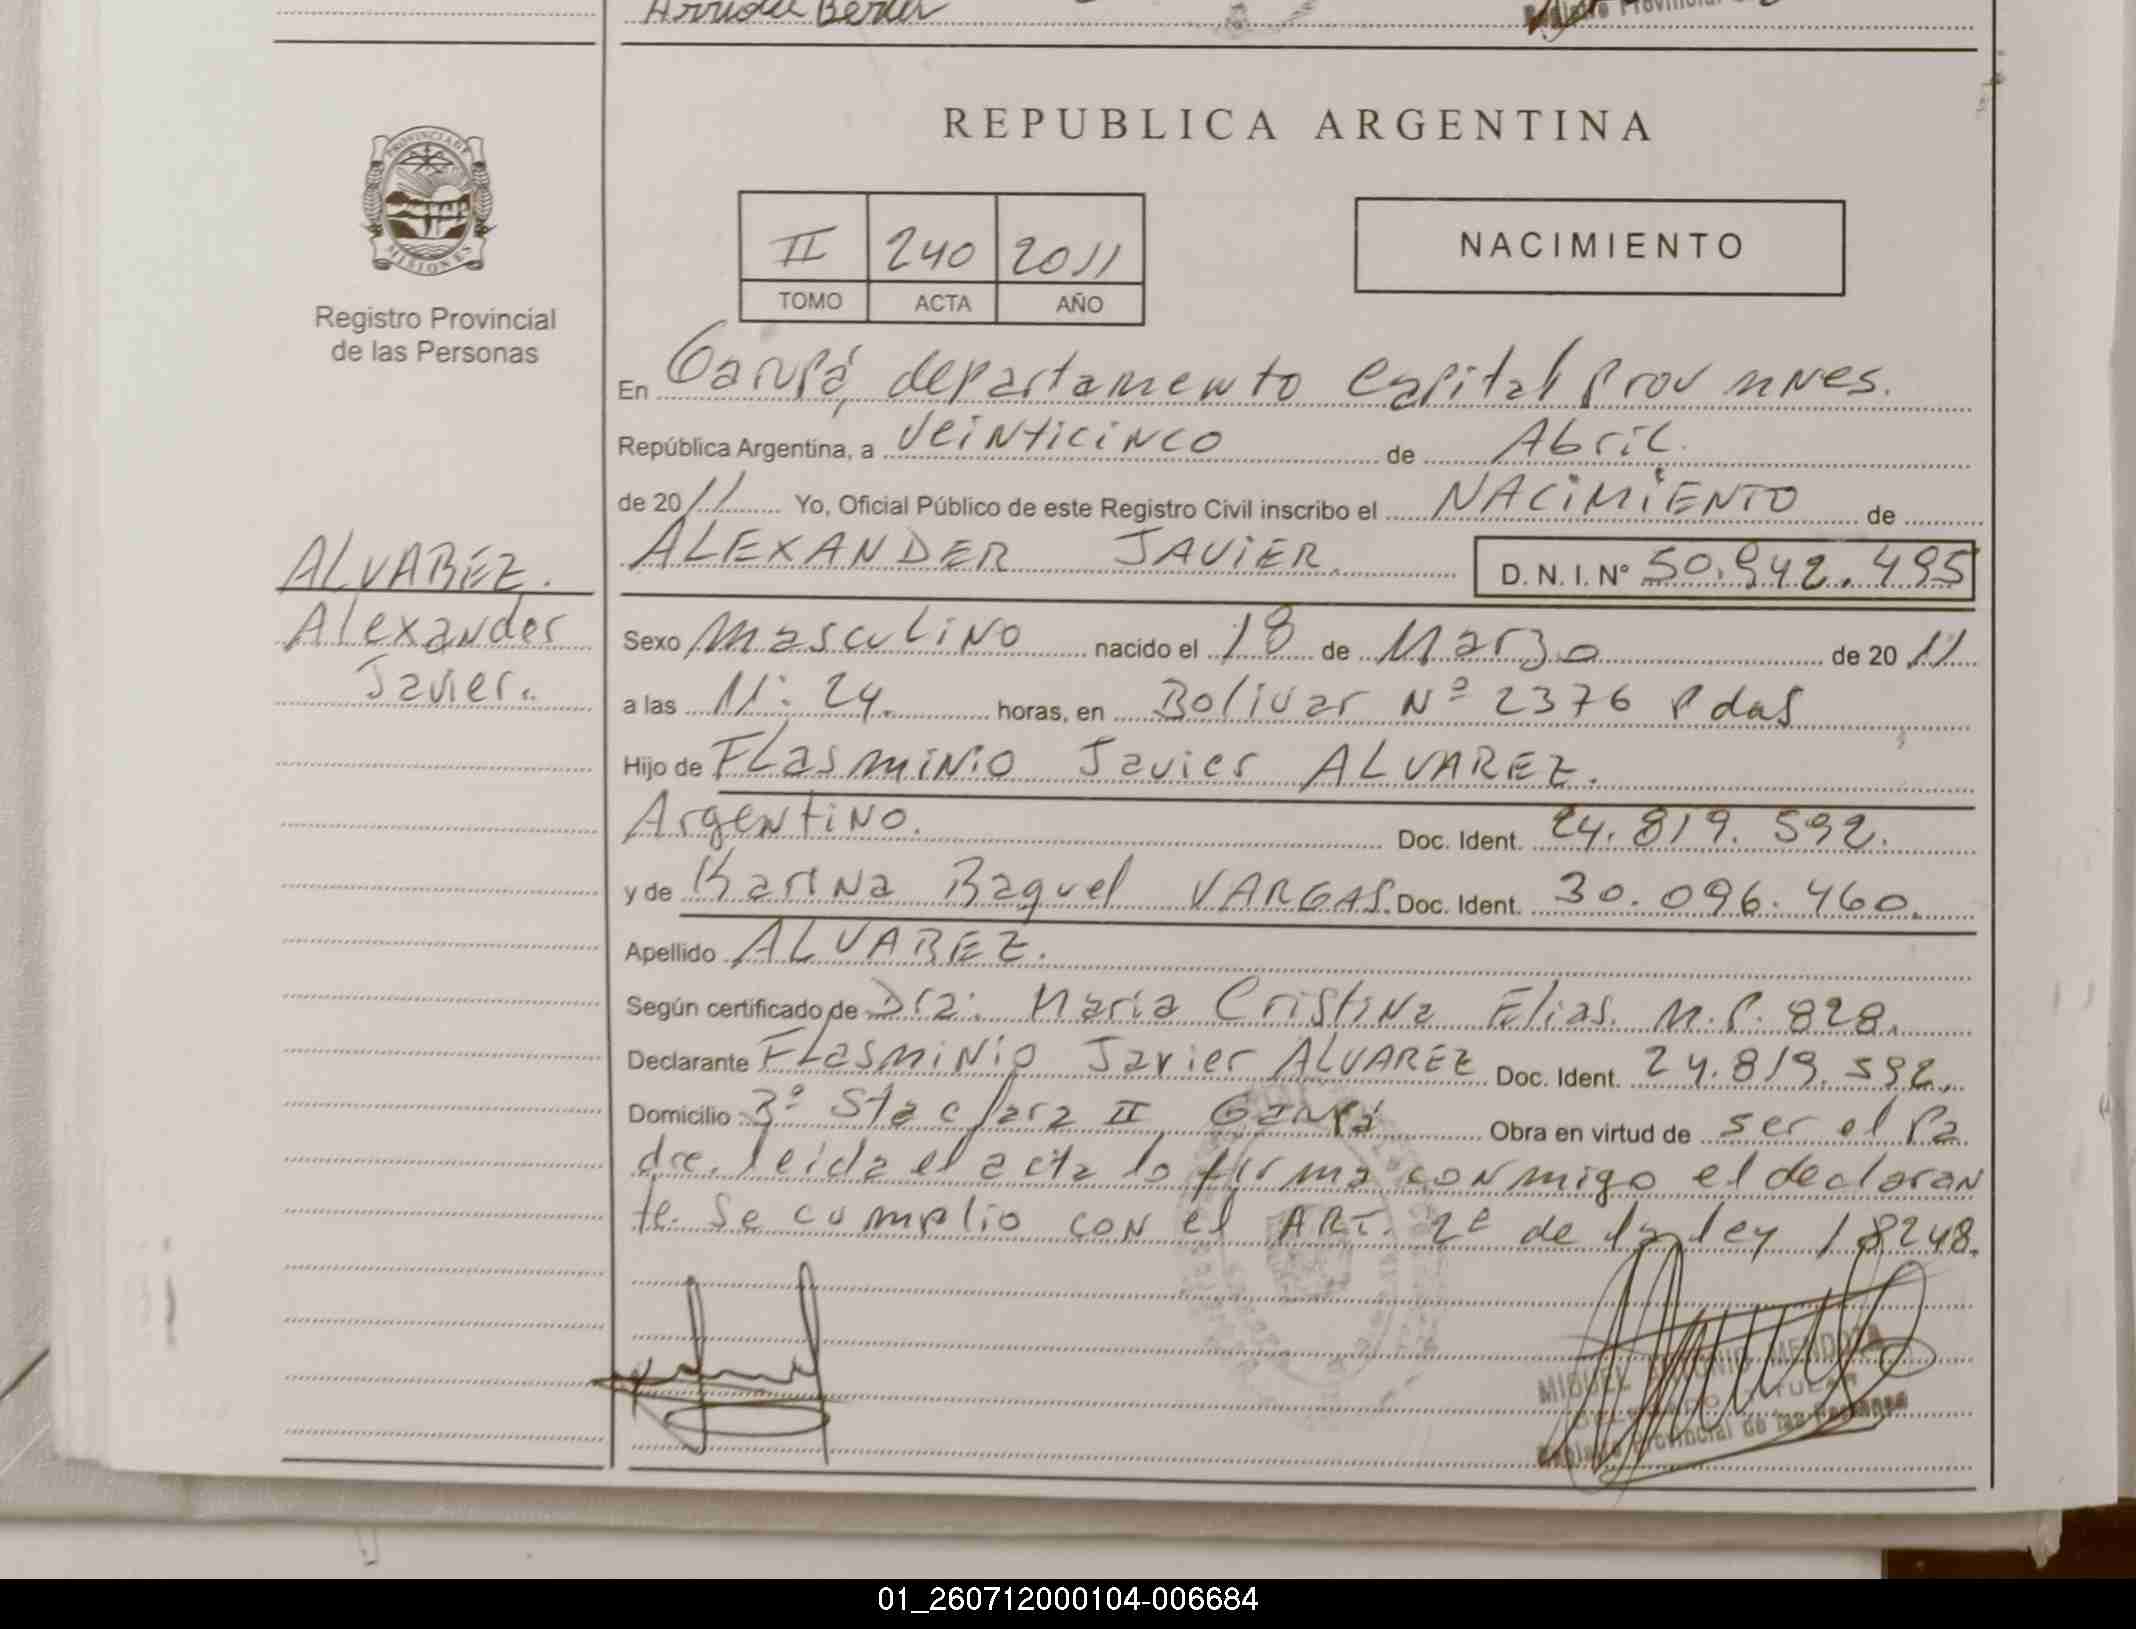 Arruda Beriu
Registro Provincial
REPUBLICA ARGENTINA
PROVINCIA DE
MISIONES
Registro Provincial
de las Personas
II 240 2011
TOMO ACTA AÑO
NACIMIENTO
En Garupá, departamento Capital Prov mnes.
República Argentina, a veinticinco de Abril.
de 2011 Yo, Oficial Público de este Registro Civil inscribo el NACIMIENTO de
ALEXANDER JAVIER. D. N. I. Nº 50.942.495
ALVAREZ.
Alexander
Javier.
Sexo Masculino nacido el 18 de Marzo de 2011
a las 11:24. horas, en Bolivar Nº 2376 Pdas
Hijo de FLasminio Javier ALVAREZ.
Argentino. Doc. Ident. 24.819.592.
y de Karina Raquel VARGAS. Doc. Ident. 30.096.460.
Apellido ALVAREZ.
Según certificado de Dra: Maria Cristina Elias. M.P. 828.
Declarante FLasminio Javier ALVAREZ Doc. Ident. 24.819.592.
Domicilio Bº Sta clara II Garupá Obra en virtud de ser el Pa
dre. leida el acta lo firma conmigo el declaran
te. Se cumplio con el ART. 2º de la ley 18248.
MIGUEL ANTONIO MENDOZA
DELEGADO TITULAR
Registro Provincial de las Personas
01_260712000104-006684